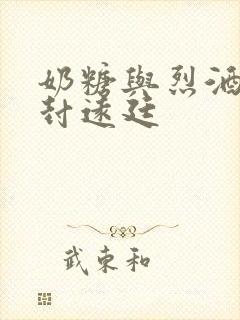 奶糖與烈酒
封遠廷
武東和